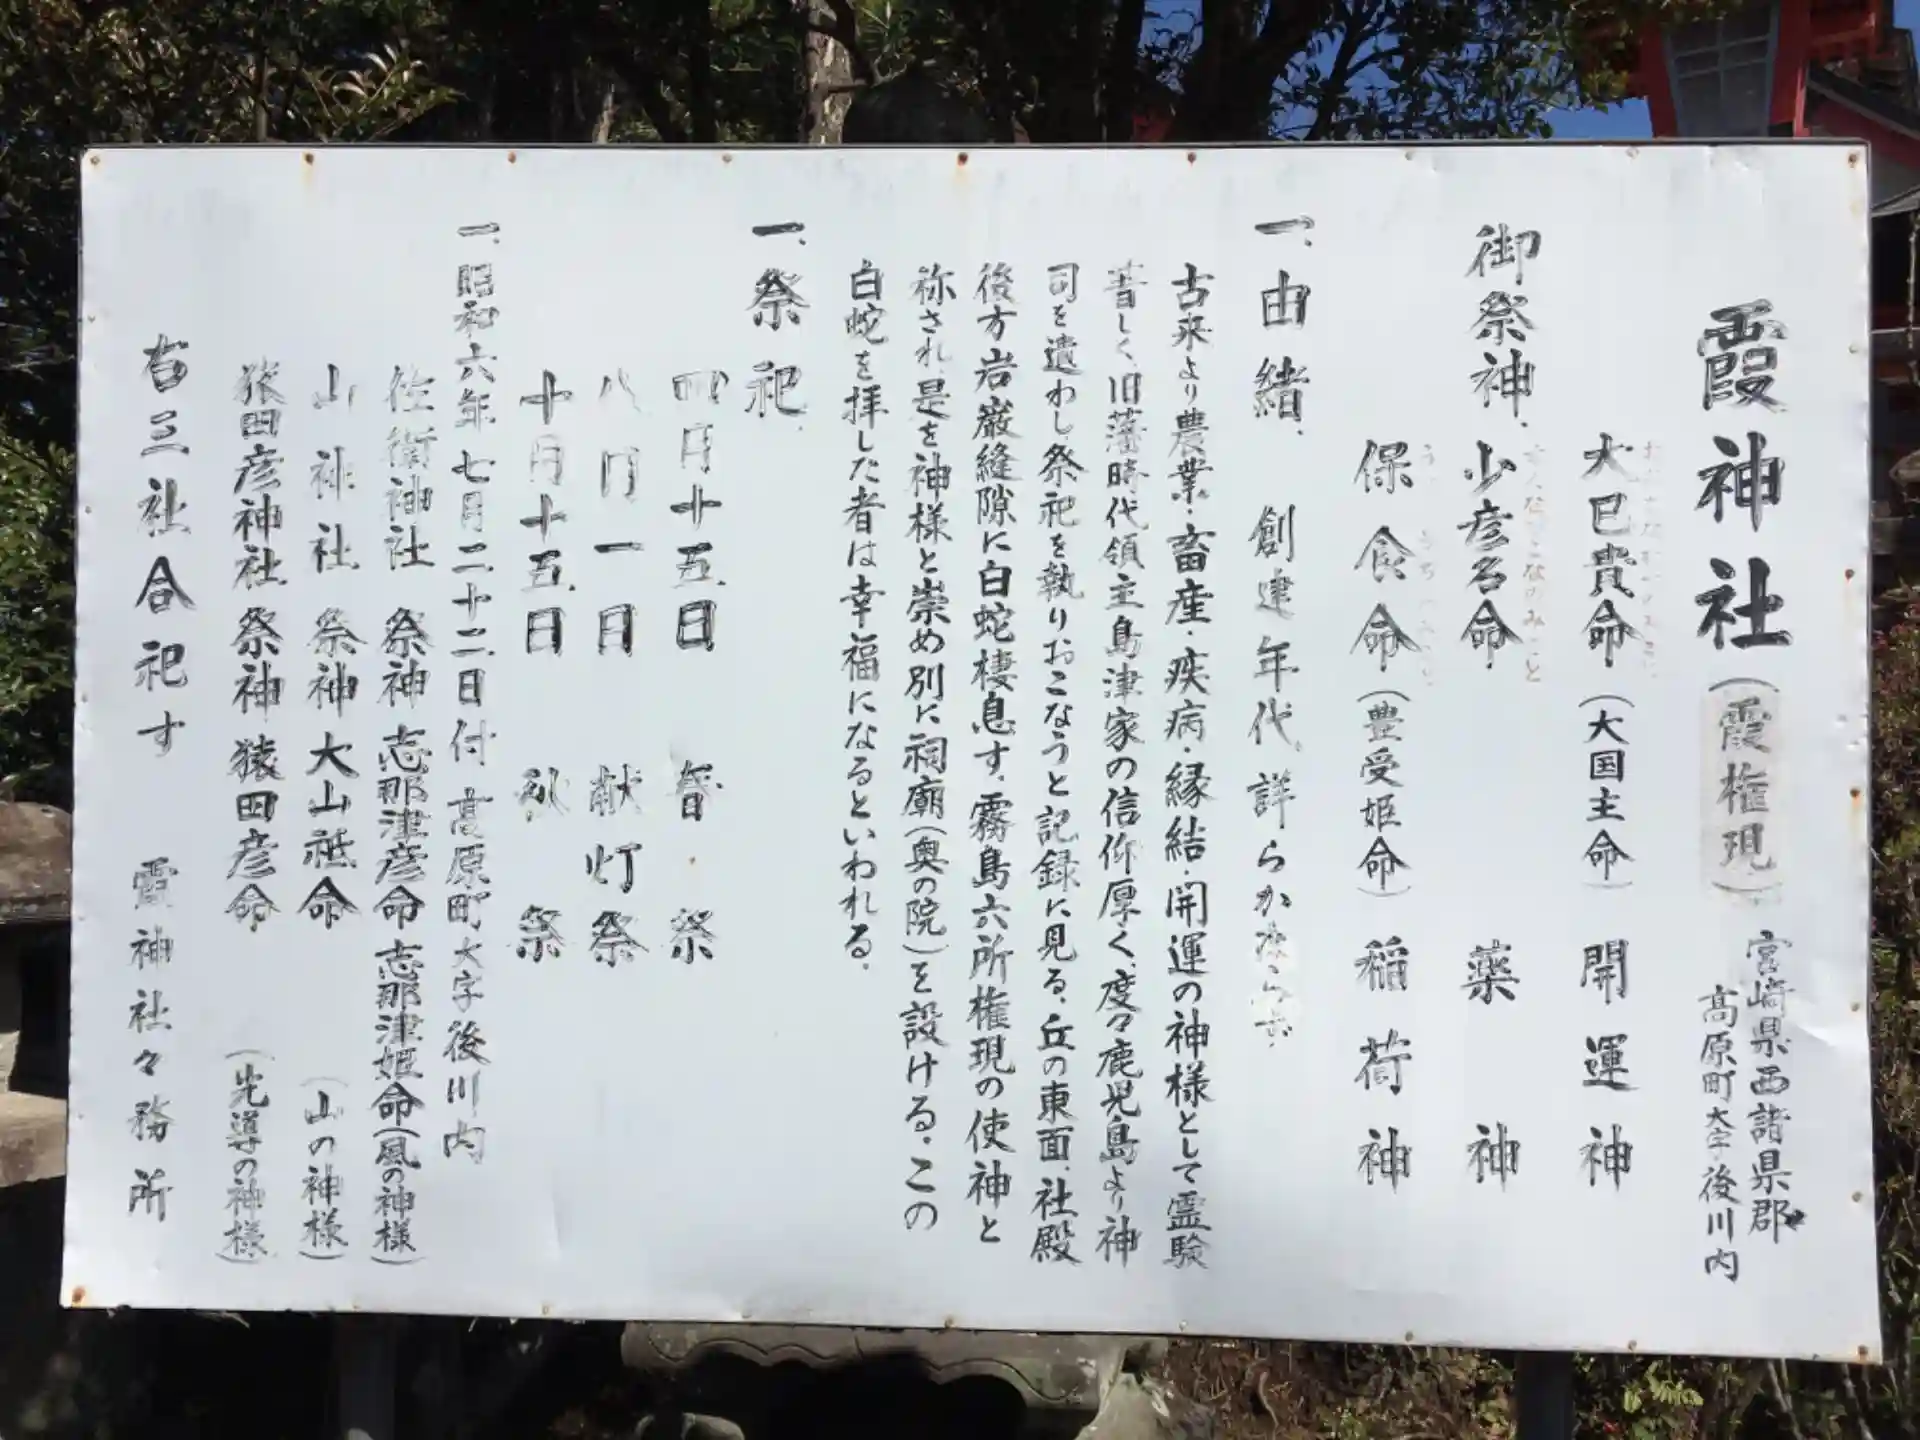 霞神社(霞権現)
宮崎県西諸県郡
高原町大字後川内
大巳貴命(大国主命) 開運神
御祭神、少彦名命 薬神
すくなひこなのみこと
保食命(豊受姫命) 稲荷神
一、由緒、 創建年代、詳らかならず、
古来より農業・畜産・疾病・縁結・開運の神様として霊験
著しく、旧藩時代領主島津家の信仰厚く、度々鹿児島より神
司を遣わし祭祀を執りおこなうと記録に見る、丘の東面、社殿
後方岩巌縫隙に白蛇棲息す、霧島六所権現の使神と
称され、是を神様と崇め別に祠廟(奥の院)を設ける、この
白蛇を拝した者は幸福になるといわれる、
一、祭祀、
四月十五日 春祭
八月一日 献灯祭
十月十五日 秋祭
一、昭和六年七月二十二日付 高原町大字後川内
神社 祭神 志那津彦命 志那津姫命(風の神様)
山神社 祭神 大山祗命 (山の神様)
猿田彦神社 祭神 猿田彦命 (先導の神様)
右三社合祀す 霞神社々務所